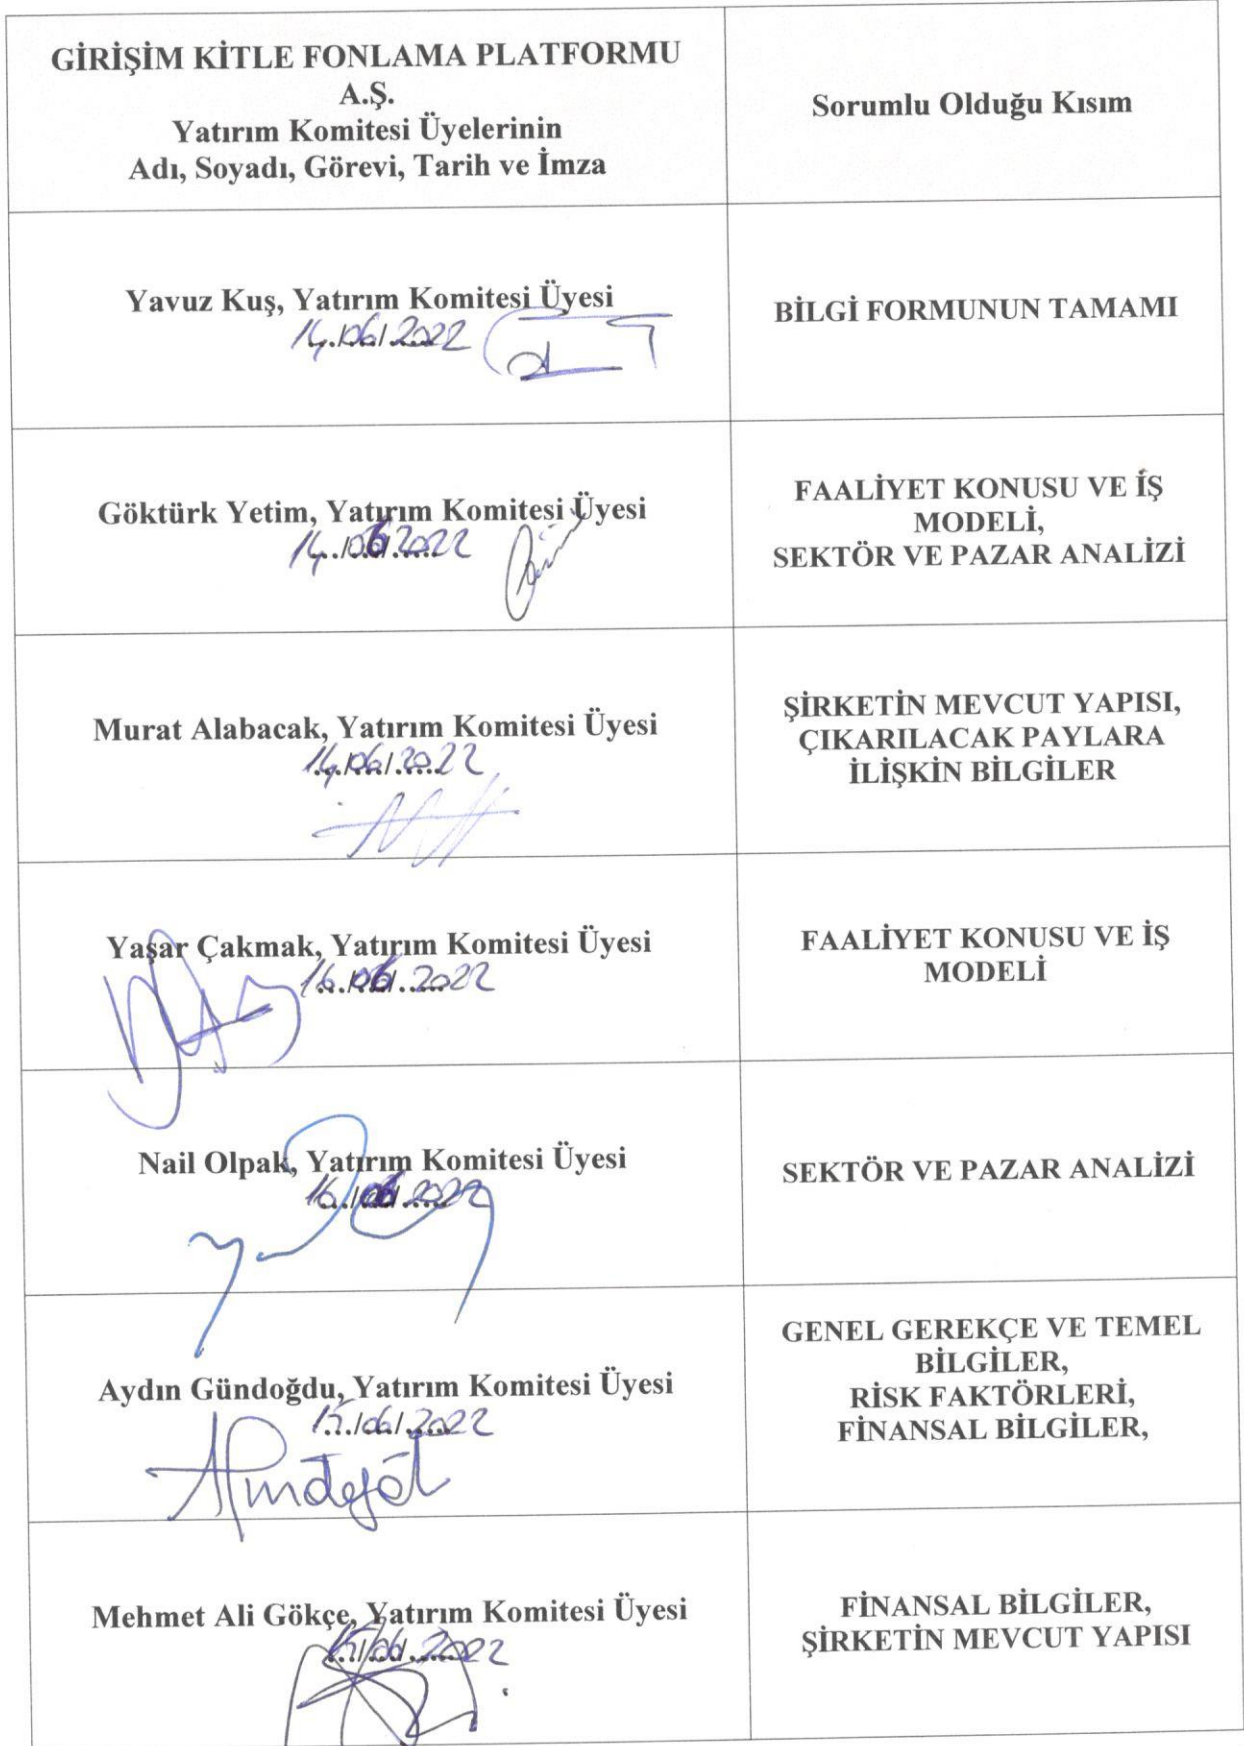 GİRİŞİM KİTLE FONLAMA PLATFORMU
A.Ş.
Yatırım Komitesi Üyelerinin
Adı, Soyadı, Görevi, Tarih ve İmza
Sorumlu Olduğu Kısım
Yavuz Kuş, Yatırım Komitesi Üyesi
14/06/2022
BİLGİ FORMUNUN TAMAMI
Göktürk Yetim, Yatırım Komitesi Üyesi
14/06/2022
FAALİYET KONUSU VE İŞ
MODELİ,
SEKTÖR VE PAZAR ANALİZİ
Murat Alabacak, Yatırım Komitesi Üyesi
14/06/2022
ŞİRKETİN MEVCUT YAPISI,
ÇIKARILACAK PAYLARA
İLİŞKİN BİLGİLER
Yaşar Çakmak, Yatırım Komitesi Üyesi
16/06/2022
FAALİYET KONUSU VE İŞ
MODELİ
Nail Olpak, Yatırım Komitesi Üyesi
16/06/2022
SEKTÖR VE PAZAR ANALİZİ
Aydın Gündoğdu, Yatırım Komitesi Üyesi
15/06/2022
GENEL GEREKÇE VE TEMEL
BİLGİLER,
RİSK FAKTÖRLERİ,
FİNANSAL BİLGİLER,
Mehmet Ali Gökçe, Yatırım Komitesi Üyesi
15/06/2022
FİNANSAL BİLGİLER,
ŞİRKETİN MEVCUT YAPISI